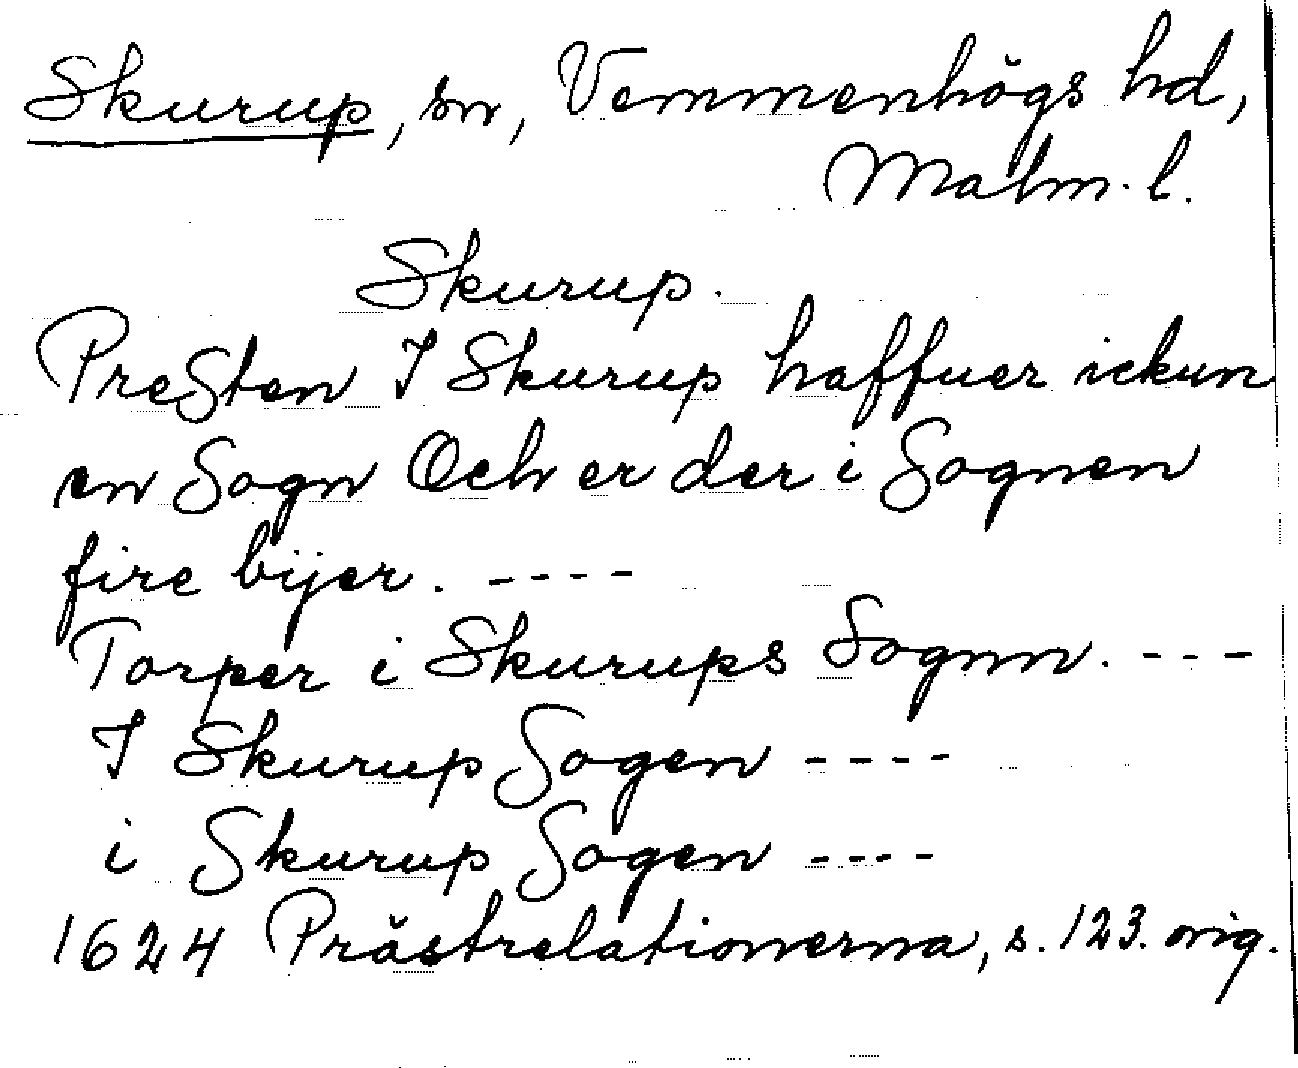 Skurup, sn, Vemmenhögs hd,
Malm. l.
Skurup.
PreSten I Skurup haffuer ickun
en Sogn Och er der i Sognen
fire bijer. ----
Torper i Skurups Sognn. ---
I Skurup Sogen ----
i Skurup Sogen ----
1624 Prästrelationerna, s. 123. orig.